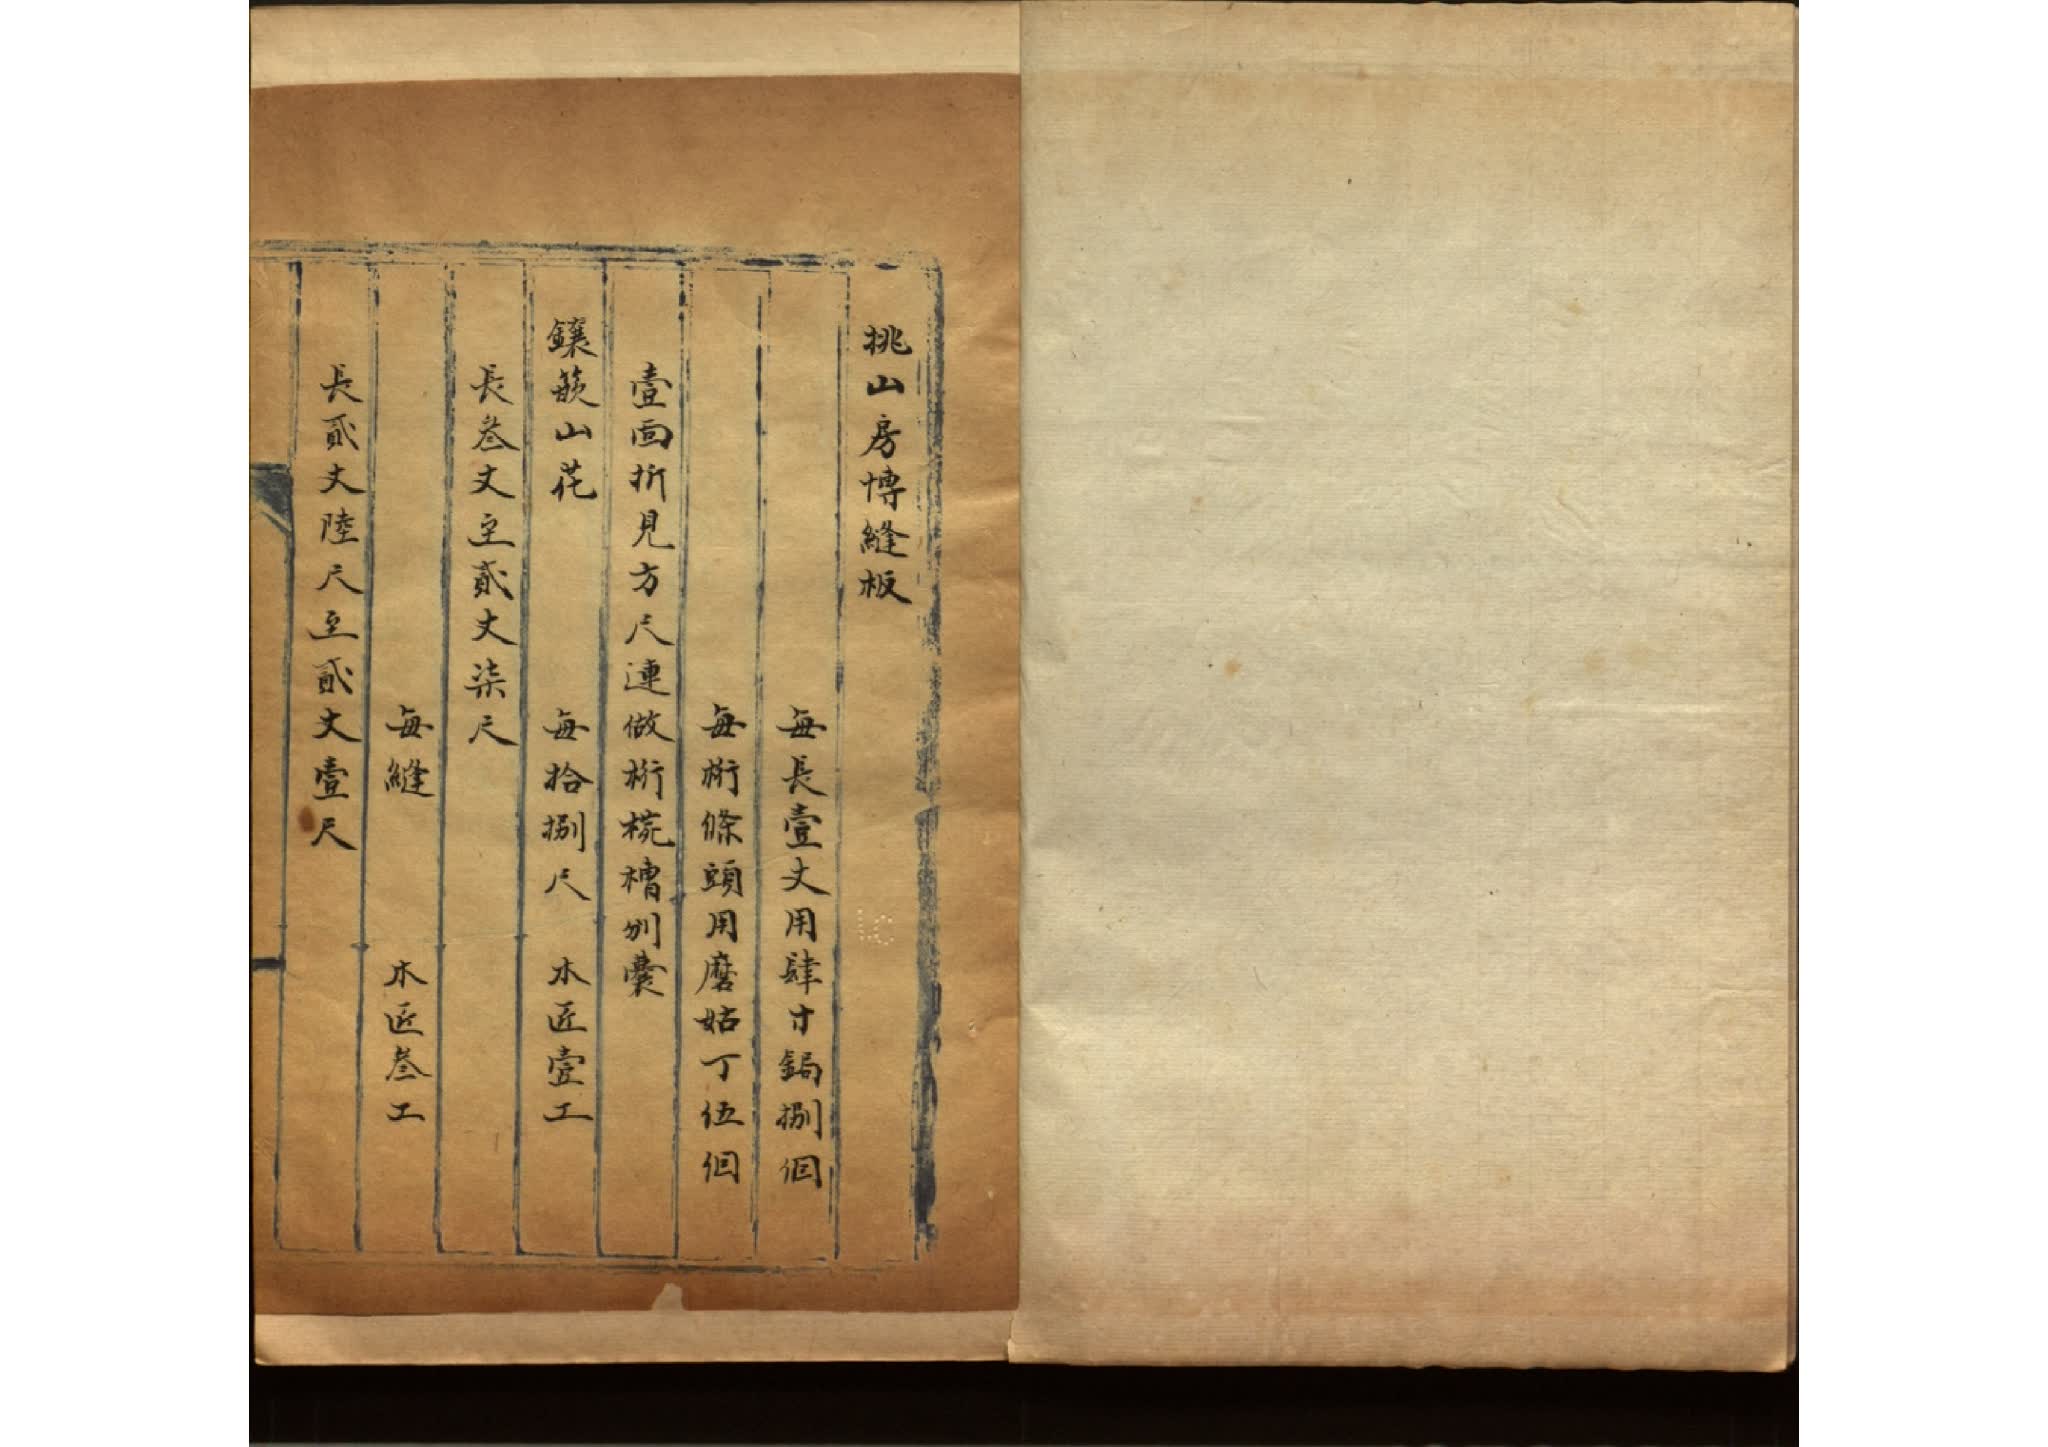 挑山房博縫板
每長壹丈用肆寸鋦捌個
每桁條頭用磨姑丁伍個
壹面折見方尺連做桁椀槽刎囊
鑲嵌山花
每拾捌尺 木匠壹工
長叁丈至貳丈柒尺
每縫 木匠叁工
長貳丈陸尺至貳丈壹尺